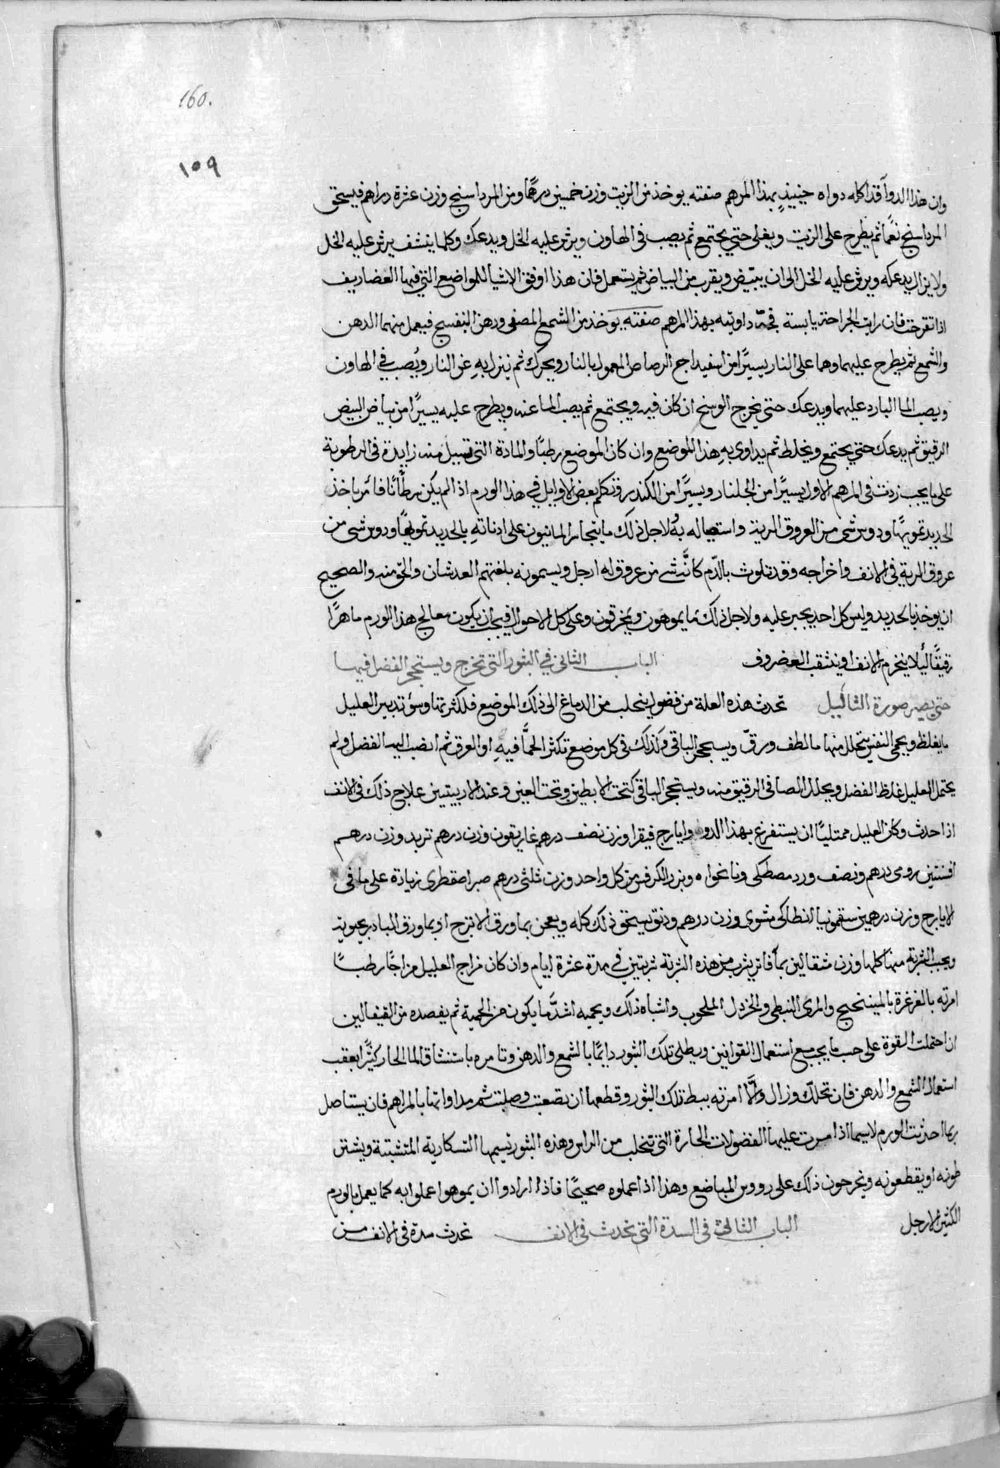 160.
١٥٩
وان هذا الدوآ قد اكله دواه حينيذٍ بهذا المرهم صفته يوخذ من الزيت وزن خمسين درهمًا ومن المرداسنج وزن عشرة دراهم فيسحق
المرداسنج نعمًا ثم يطرح على الزيت ويغلى حتى يجتمع ثم يصب فى الهاون ويرش عليه الخل ويدعك وكلما ينشف يرش عليه الخل
ولا يزال يدعكه ويرش عليه الخل الى ان يبيّض ويقرب من البياض ثم يستعمل فان هذا اوفق الاشيا للمواضع التى فيها الغضاريف
اذا تقرحت فان رايت الجراحة يابسة داويته بهذا المرهم صفته يوخذ من الشمع المصفى ودهن البنفسج فيعمل منهما الدهن
والشمع ثم يطرح عليهما وهما على النار يسيرًا من اسفيداج الرصاص المعمول بالنار ويحرك ثم ينزل به عن النار ويُصب في الهاون
ويصب الما البارد عليهما ويدعك حتى يخرج الوسخ ان كان فيه ويجتمع ثم يصب الما عنه ويطرح عليه يسيرًا من بياض البيض
الرقيق ثم يدعك حتى يجتمع ويختلط ثم يداوى به هذا الموضع وان كان الموضع رطبًا والمادة التى تسيل منه زايدة فى الرطوبة
على ما يجب زدت فى المرهم الاول يسيرًا من الجلنار ويسيرًا من الكندر وتكلم بعض الاوايل في هذا الورم اذا لم يكن سرطانًا فامر باخذ
الحديد تمويهًا ودوس شى من العروق الرية واستعماله به ولاجل ذلك ما يتجاسر المانيون على اذناته بالحديد تمويهًا ودوس شى من
عروق الرية فى الانف واخراجه وقد تلوث بالدّم كانّه شى من عروق له ارجل ويسمونه بلغتهم العدشان والحق منه والصحيح
ان يوخذ بالحديد وليس كل احد يجبر عليه ولاجل ذلك ما يموهون ويمخرقون وعلى كل الاحوال فيجب ان يكون معالج هذا الورم ماهرًا
رقيقًا ليلا ينخرم الانف او يثقب الغضروف الباب الثانى في البثور التى تخرج ويستحجر الفضل فيها
حتى يصير صورة الثاليل تحدث هذه العلة من فضول ينحلب من الدماغ الى ذلك الموضع فلكثرتها وسؤ تدبير العليل
ما يغلظ ويجى النفس يتحلل منها ما لطف ورقّ ويستحجر الباقى وكذلك فى كل موضع تكثر الحمّا فيه او العرق ثم انصب اليه الفضل ولم
يحتمل العليل غلظ الفضل ويحلل الصافى الرقيق منه ويستحجر الباقى كتحت الابطين وتحت العين وعند الاربيتين علاج ذلك فى الانف
اذا حدث وكان العليل ممتليًا ان يستفرغ بهذا الدوا وايارج فيقرا وزن نصف درهم غاريقون وزن درهم تربد وزن درهم
افسنتين رومى درهم ونصف ورد مصطكى ونانخواه وبزر الكرفس من كل واحد وزن ثلثى درهم صبر اصقطرى زيادة على ما فى
الايارج وزن درهمين سقمونيا انطاكى مشوى وزن درهم ودنق يسحق ذلك كله ويعجن بما ورق الاترج او بما ورق البادرنجبويه
ويحبب الشربة منها كلها وزن مثقالين بمآ فاتر يشرب من هذه الشربة شربتين في مدة عشرة ايام وان كان مزاج العليل مزاجًا رطبًا
امرته بالغرغرة بالميبختج والمرى النبطى والخردل واشباه ذلك ويحميه اشدّ ما يكون من الحمية ثم يفصده من القيفالين
ان احتملت القوة على حسب ما يجب مع استعمال القوانين ويطلى تلك البثور دايمًا بالشمع والدهن وتامره باستنشاق الما الحار كثيرًا بعقب
استعمال الشمع والدهن فان تحللت وزال والّا امرته ببط تلك البثور وقطعها ان صعبت وصلبت ثم مداواتها بالمراهم فان يستاصل
ربما احدثت الورم لاسيما اذا مرت عليها الفضولات الحارة التى تتحلب من الراس وهذه البثور تسيمها النسكارية المتشبتة ويشتر
طونه او يقطعونه ويخرجون ذلك على رووس المباضع وهذا اذا عملوه صحيحًا فاذا ارادوا ان يموهوا عملوا به كما يعمل بالورم
الكثير الارجل الباب الثالث فى السدة التى تحدث فى الانف تحدث سدة فى الانف من